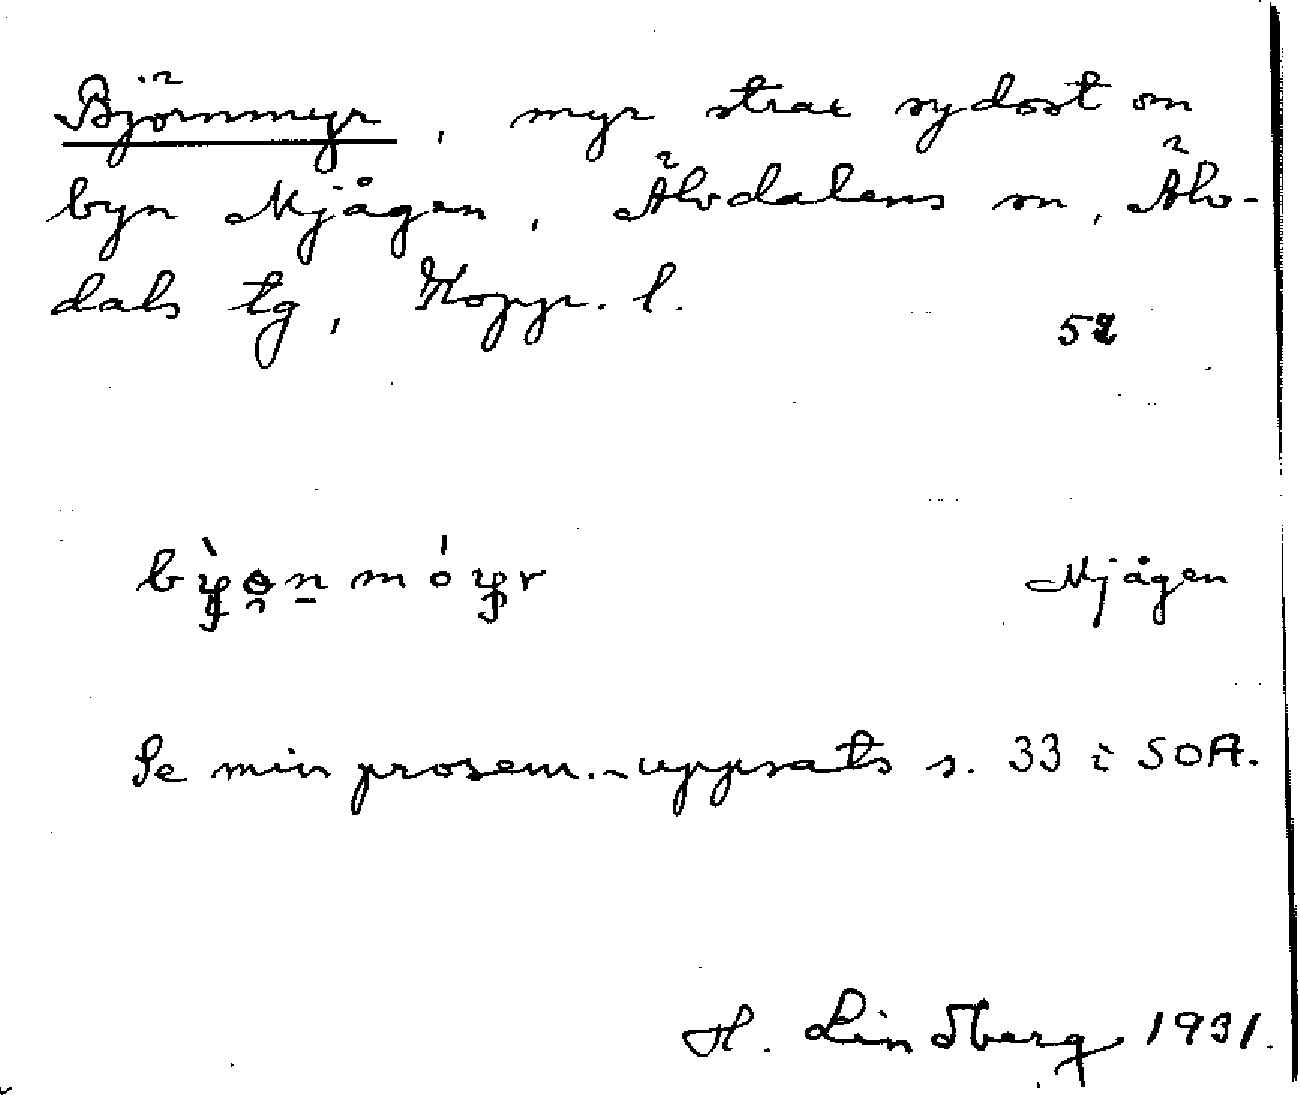 Björnmyr, myr strax sydost om
byn Mjågen, Älvdalens sn, Älv-
dals tg, Kopp. l.
52
Mjågen
Se min prosem.-uppsats s. 33 i SOA.
H. Lindberg 1931.